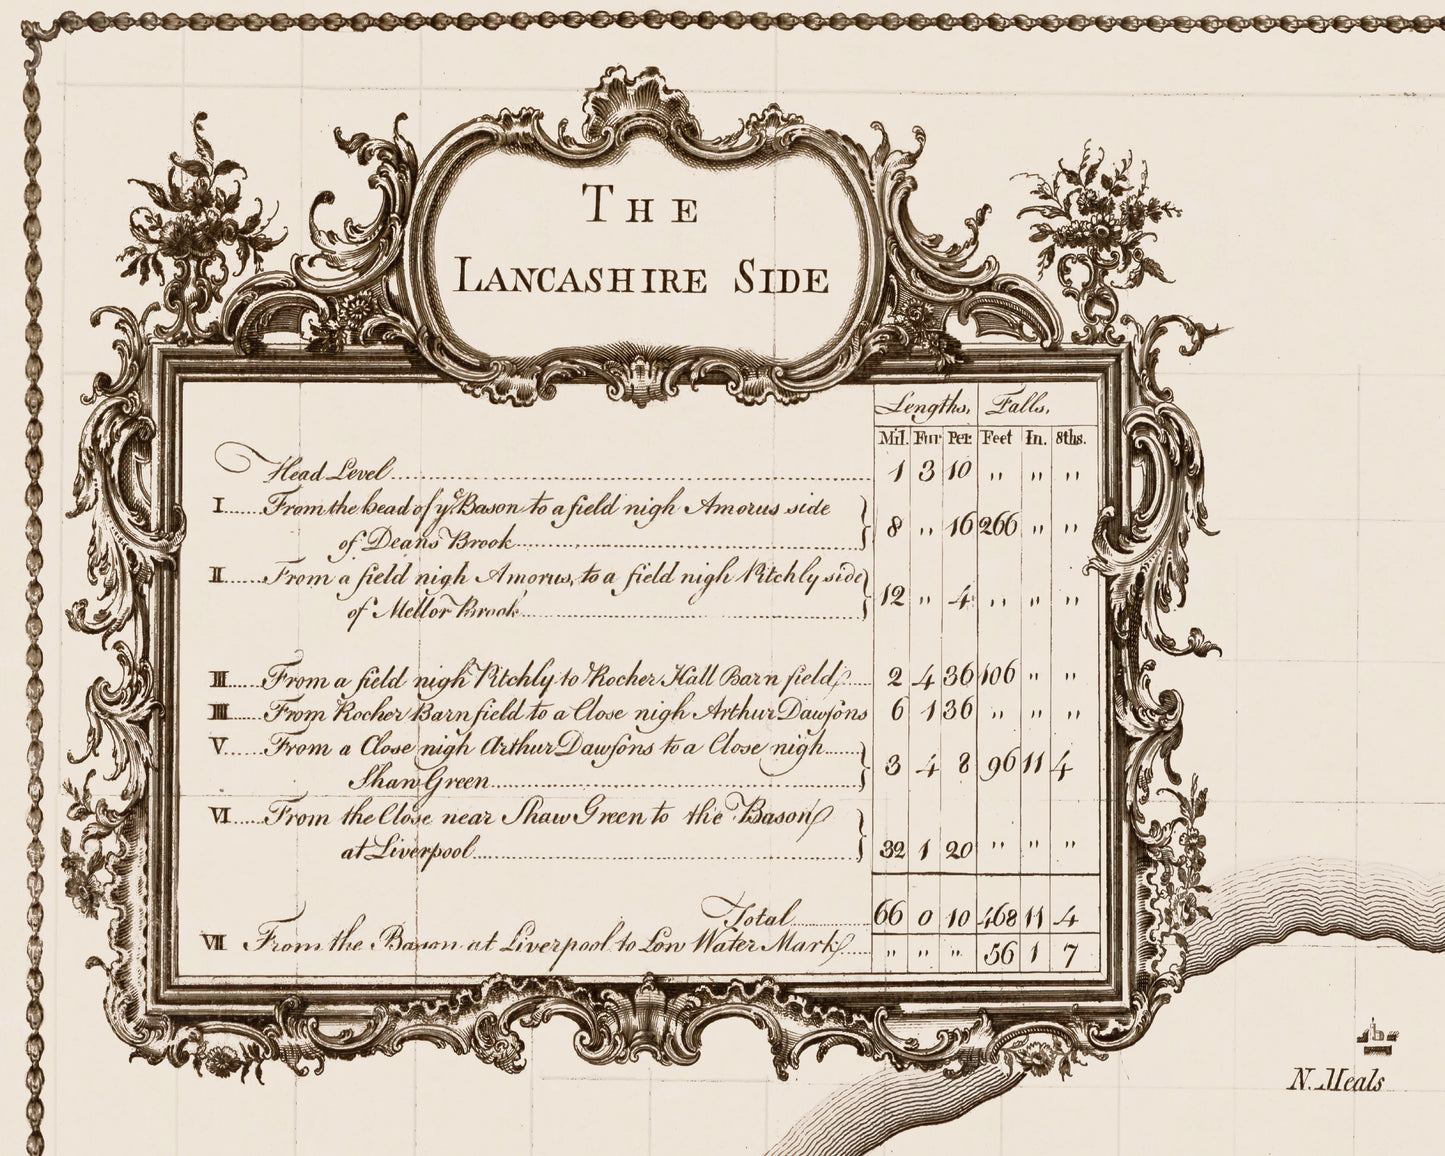 THE
LANCASHIRE SIDE
Lengths, Falls,
Mil. Fur Per. Feet In. 8ths.
Head Level 1 3 10 " " "
I From the head of yᵉ Bason to a field nigh Amorus side
of Deans Brook 8 " 16 266 " "
II From a field nigh Amorus, to a field nigh Ritchly side
of Mellor Brook 12 " 4 " " "
III From a field nigh Ritchly to Rocher Hall Barn field 2 4 36 106 " "
IIII From Rocher Barn field to a Close nigh Arthur Dawsons 6 1 36 " " "
V From a Close nigh Arthur Dawsons to a Close nigh
Shaw Green 3 4 8 96 11 4
VI From the Close near Shaw Green to the Bason
at Liverpool 32 1 20 " " "
Total 66 0 10 468 11 4
VII From the Bason at Liverpool to Low Water Mark " " " 56 1 7
N. Meals